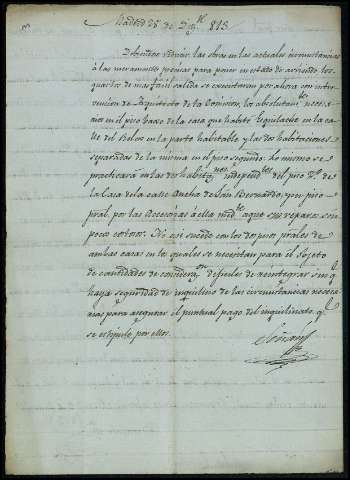 Madrid 28 de Dic.e 813
Debiendo ceñirse las obras en las actuales circunstancias
á las meramente precisas para poner en estado de arriendo los
quartos de mas fácil salida se executarán por ahora con inter
vencion de Arquitecto de la Comision, los absolutam.te necesa
rios en el piso baxo de la casa que habitó en la ca
lle del Relox en la parte habitable, y las dos habitaciones
separadas de la misma en el piso segundo: lo mismo se
practicará en las dos habit.nes independ.tes del piso 2.o de
la casa de la calle Ancha de San Bernardo, y en piso
pral, por las Accesorias á ella med.te á que sus reparos son
poco costosos. No asi sucede con los dos pisos prales de
ambas casas en los quales se necesitan para el
de cantidades de consideraz.on dificiles de reintegrar sin q.e
haya seguridad de inquilino de las circunstancias necesa
rias para asegurar el puntual pago del inquilinato q.e
se estipule por ellos.